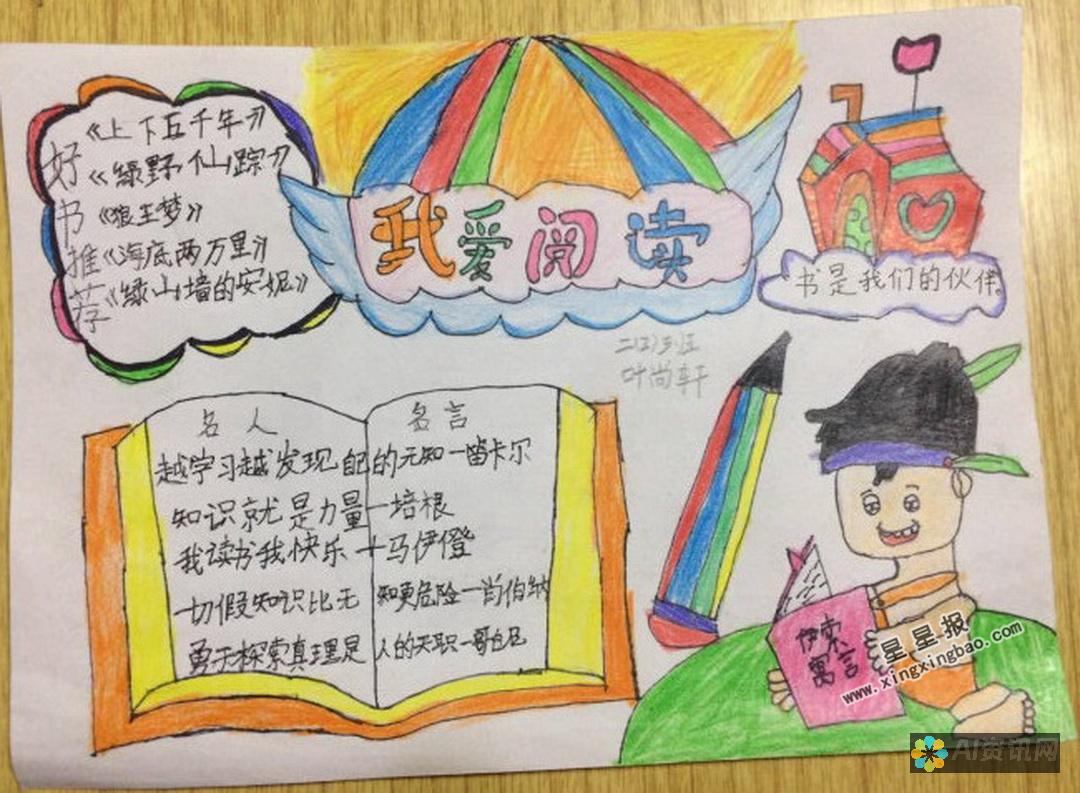 我爱阅读
好书推荐
《上下五千年》
《绿野仙踪》
《狼王梦》
《海底两万里》
《绿山墙的安妮》
书是我们的伙伴。
二(2)班
叶尚轩
名人名言
越学习越发现自己的无知—笛卡尔
知识就是力量—培根
我读书我快乐—马伊僜
一切假知识比无知更危险—肖伯纳
勇于探索真理是人的天职—哥白尼
伊索
寓言
星星报
www.xingxingbao.com
AI资讯网